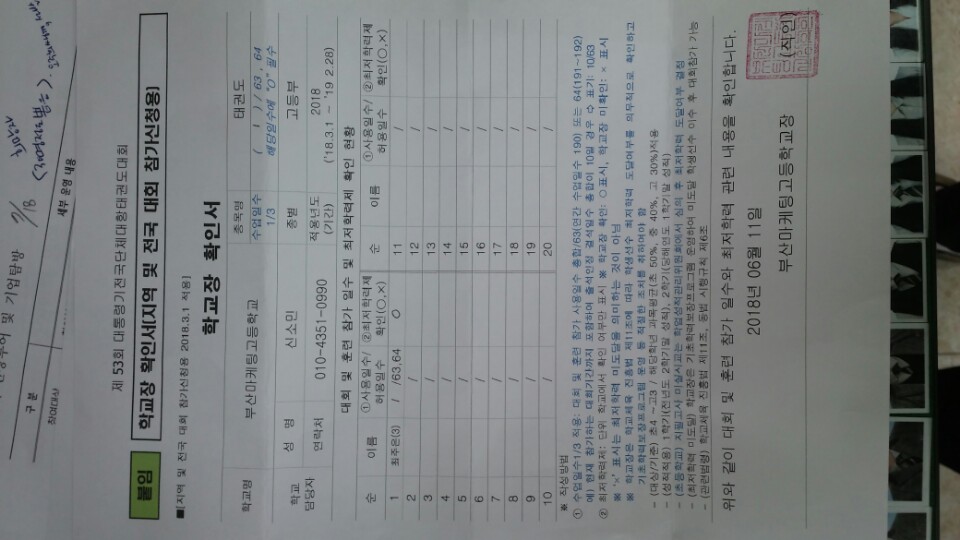 기업탐방
구 분
참여대상
세부 운영 내용
제 53회 대통령기전국단체대항태권도대회
붙임
학교장 확인서(지역 및 전국 대회 참가신청용)
■[지역 및 전국 대회 참가신청용 2018.3.1 적용]
학교장 확인서
학교명 부산마케팅고등학교 종목명 태권도
수업일수 1/3 ( ) / 63, 64 해당일수에 "O" 필수
학교 담당자 성 명 신소민 종별 고등부
연락처 010-4351-0990 적용년도 (기간) 2018 ('18.3.1 ~ '19 2.28)
대회 및 훈련 참가 일수 및 최저학력제 확인 현황
순 이름 ①사용일수/허용일수 ②최저학력제 확인(○,×) 순 이름 ①사용일수/허용일수 ②최저학력제 확인(○,×)
1 최주은(3) / /63,64 ○ 11 /
2 / 12 /
3 / 13 /
4 / 14 /
5 / 15 /
6 / 16 /
7 / 17 /
8 / 18 /
9 / 19 /
10 / 20 /
※ 작성방법
① 수업일수1/3 적용: 대회 및 훈련 참가 사용일수 총합/63(연간 수업일수 190) 또는 64(191~192)
예) 현재 참가하는 대회기간까지 포함하여 출석인정 결석일수 총합이 10일 경우 ⇨ 표기: 10/63
② 최저학력제: 단위 학교에서 확인 여부만 표시 ※ 학교장 확인: ○표시, 학교장 미확인: × 표시
※ '×' 표시는 최저학력 미도달을 의미하는 것이 아님
※ 학교장은 학교체육 진흥법 제11조에 따라 학생선수 최저학력 도달여부를 의무적으로 확인하고
기초학력보장프로그램 운영 등 적절한 조치를 취하여야 함
- (대상/기준) 초4 ~고3 / 해당학년 과목평균(초 50%, 중 40%, 고 30%)적용
- (성적적용) 1학기(전년도 2학기말 성적), 2학기(당해연도 1학기말 성적)
- (초등학교) 지필고사 미실시교는 학업성적관리위원회에서 심의 후 최저학력 도달여부 결정
- (최저학력 미도달) 학교장은 기초학력보장프로그램 운영하여 미도달 학생선수 이수 후 대회참가 가능
- (관련법령) 학교체육 진흥법 제11조, 동법 시행규칙 제6조
위와 같이 대회 및 훈련 참가 일수와 최저학력 관련 내용을 확인합니다.
2018년 06월 11일
부산마케팅고등학교장 (직인)